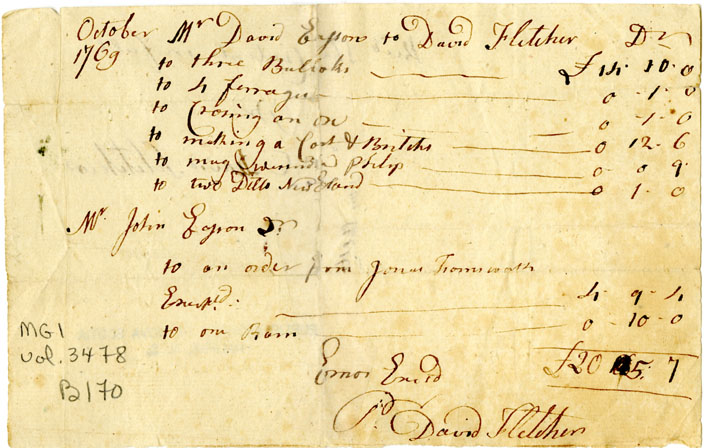 October Mr David Eason to David Fletcher Dr
1769 to three Bulloks £14 10 0
to 4 0 1 0
to Crosing an ox 0 1 0
to making a Coat & Britchs 0 12 6
to mug Philip 0 0 9
to two Ditto New England 0 1 0
Mr. John Eason Dr
to an order from Jonas
4 9 4
to one Barn 0 10 0
£20 5 7
Errors
Pr David Fletcher
MG1
vol. 3478
B170